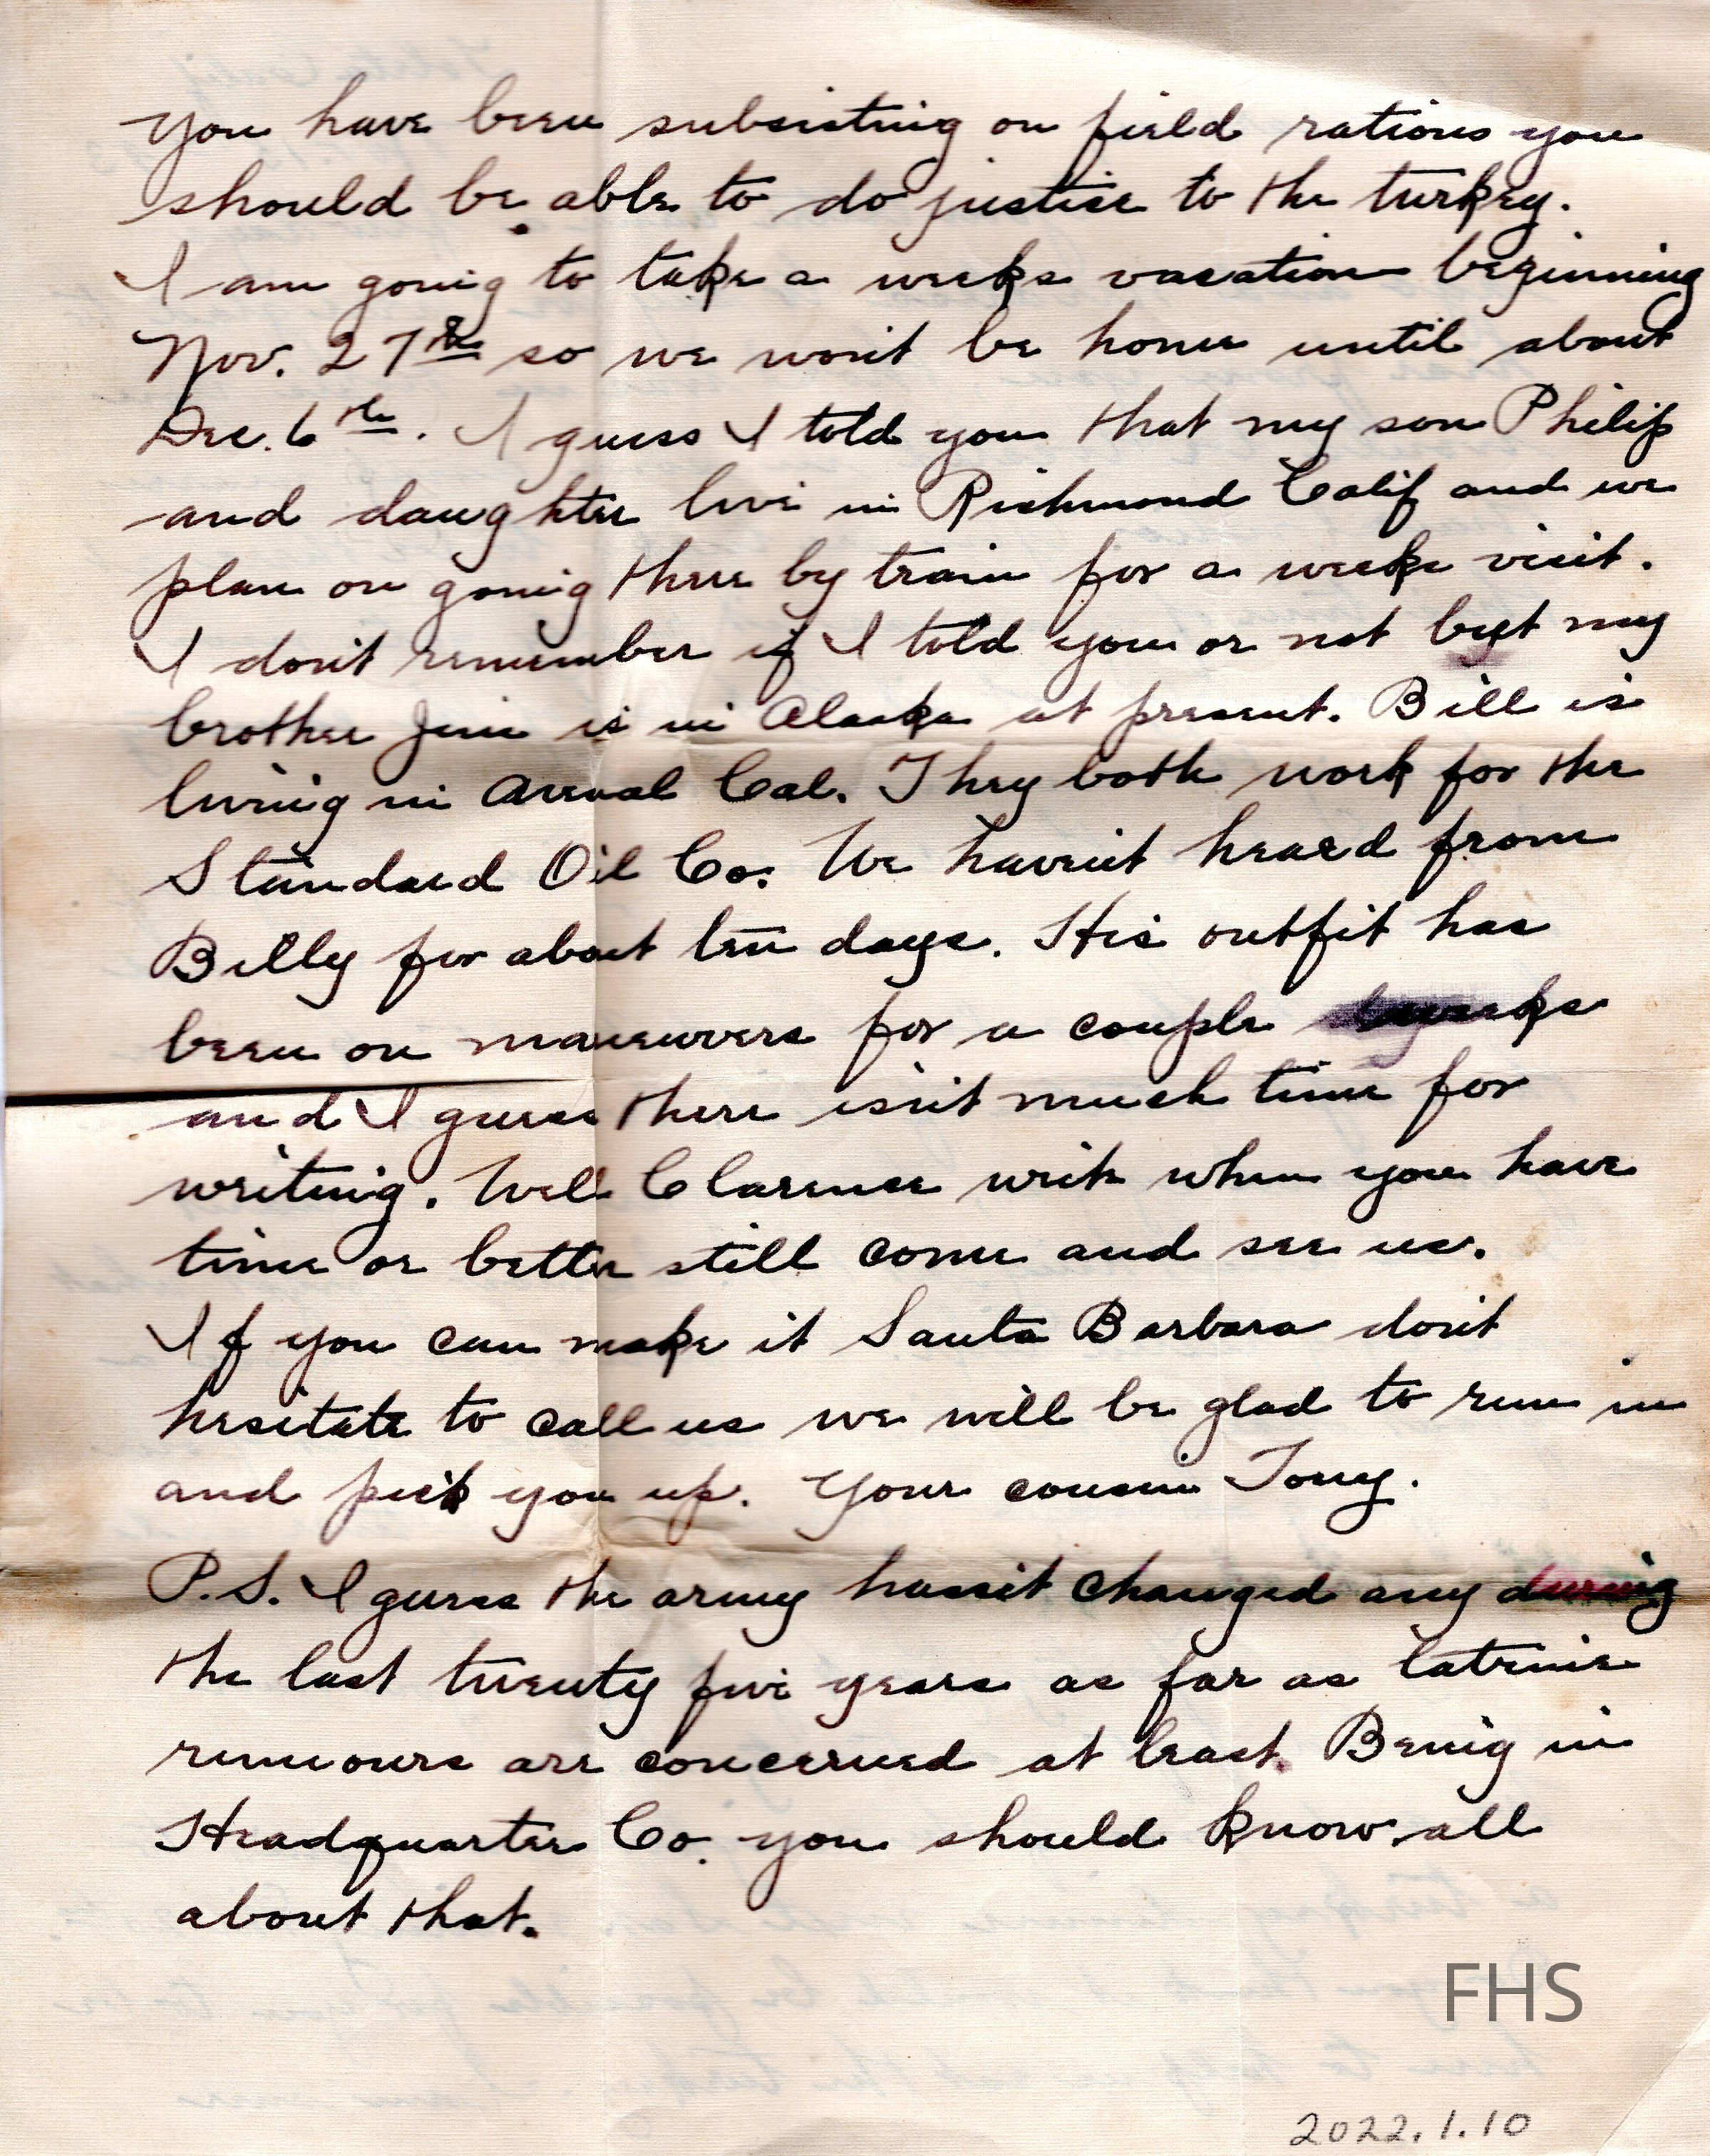 you have been subsisting on field rations you
should be able to do justice to the turkey.
I am going to take a weeks vacation beginning
Nov. 27th so we won't be home until about
Dec. 6th. I guess I told you that my son Philip
and daughter live in Richmond Calif and we
plan on going there by train for a weeks visit.
I don't remember if I told you or not but my
brother Jim is in Alaska at present. Bill is
living in Avenal Cal. They both work for the
Standard Oil Co. We haven't heard from
Billy for about ten days. His outfit has
been on maneuvers for a couple weeks
and I guess there isn't much time for
writing. Well Clarence write when you have
time or better still come and see us.
If you can make it Santa Barbara don't
hesitate to call us we will be glad to run in
and pick you up. Your cousin Tony.
P.S. I guess the army hasn't changed any during
the last twenty five years as far as latrine
rumours are concerned at least. Being in
Headquarters Co. you should know all
about that.
FHS
2022.1.10